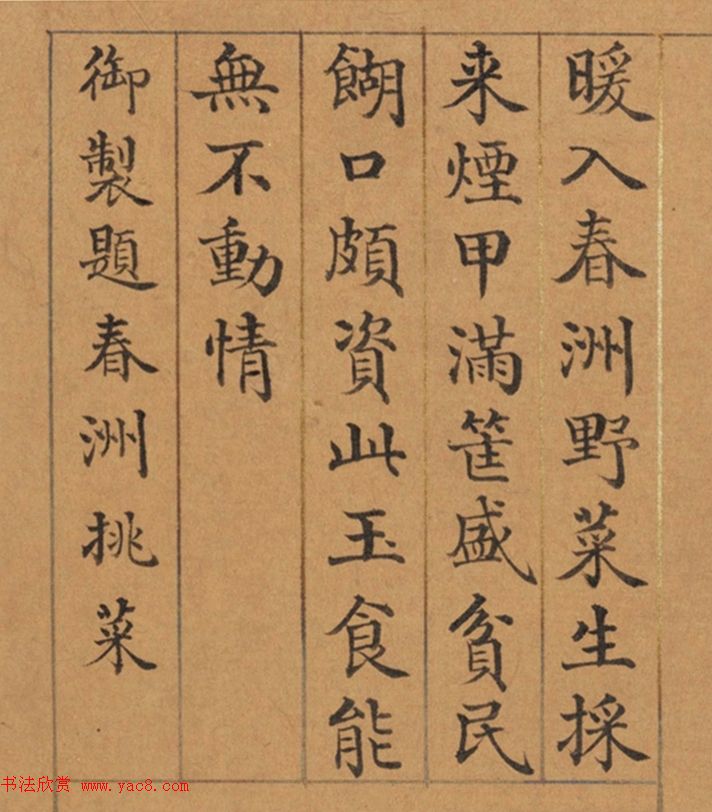 暖入春洲野菜生採
来煙甲滿筐盛貧民
餬口頗資此玉食能
無不動情
御製題春洲挑菜
书法欣赏 www.yac8.com